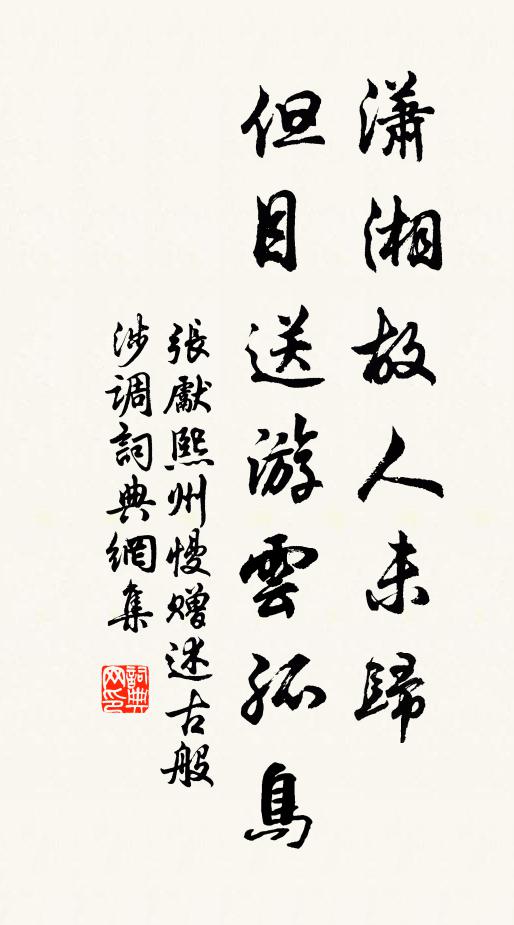 瀟湘故人未歸
但目送游雲孤鳥
張獻熙州慢贈述古般
涉調詞典網集
詞典網印